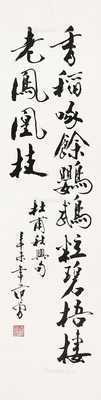 香稻啄餘鸚鵡粒碧梧棲
老鳳凰枝
杜甫秋興句
辛未年